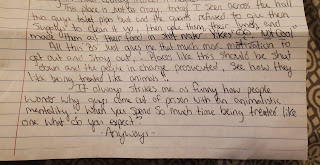 This place is just so crazy today I seen across the hall
two guys toilet pipes bust and the guards refused to give them
supplies to clean it up, then gave them their lunch and
made them eat their food in shit water! Yikes. So not cool
All this BS Just gives me that much more motivation to
get out and stay out. Places like this should be shut
down and the people in charge prosecuted. See how they
like being treated like animals!!
It always strikes me as funny how people
wonder why guys come out of prison with an animalistic
mentality. When you spend so much time being treated like
one what do you expect?
- Anyways -